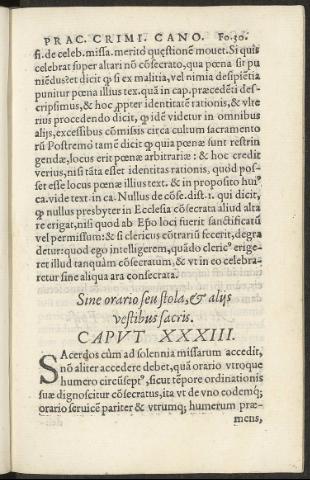 PRAC. CRIMI. CANO. Fo.50.
si. de celeb. missa. merito quęstionē mouet. Si quis
celebrat super altari nō cōsecrato, qua pœna sit pu
niēdus? et dicit ꝙ si ex malitia, vel nimia desipiētia
punitur pœna illius tex. quā in cap. præcedēti des-
cripsimus, & hoc ꝓpter identitatē rationis, & vlte
rius procedendo dicit, ꝙ idē videtur in omnibus
alijs, excessibus cōmissis circa cultum sacramento
rū Postremo tamē dicit ꝙ quia pœnæ sunt restrin
gendæ, locus erit pœnæ arbitrariæ : & hoc credit
verius, nisi tāta esset identitas rationis, quòd pos-
set esse locus pœnæ illius text. & in proposito huiꝰ
ca. vide text. in ca. Nullus de cōse. dist. 1. qui dicit,
ꝙ nullus presbyter in Ecclesia cōsecrata aliud alta
re erigat, nisi quod ab Ep̄o loci fuerit sanctificatū
vel permissum: & si clericus cōtrariū fecerit, degra
detur: quod ego intelligerem, quādo clericꝰ erige-
ret illud tanquàm cōsecratum, & vt in eo celebra-
retur sine aliqua ara consecrata.
Sine orario seu stola, & alijs
vestibus sacris.
CAPVT XXXIII.
SAcerdos cùm ad solennia missarum accedit,
nō aliter accedere debet, quā orario vtroque
humero circūseptꝰ, sicut tēpore ordinationis
suæ dignoscitur cōsecratus, ita vt de vno eodemq́;
orario seruicē pariter & vtrumq́; humerum præ-
mens,